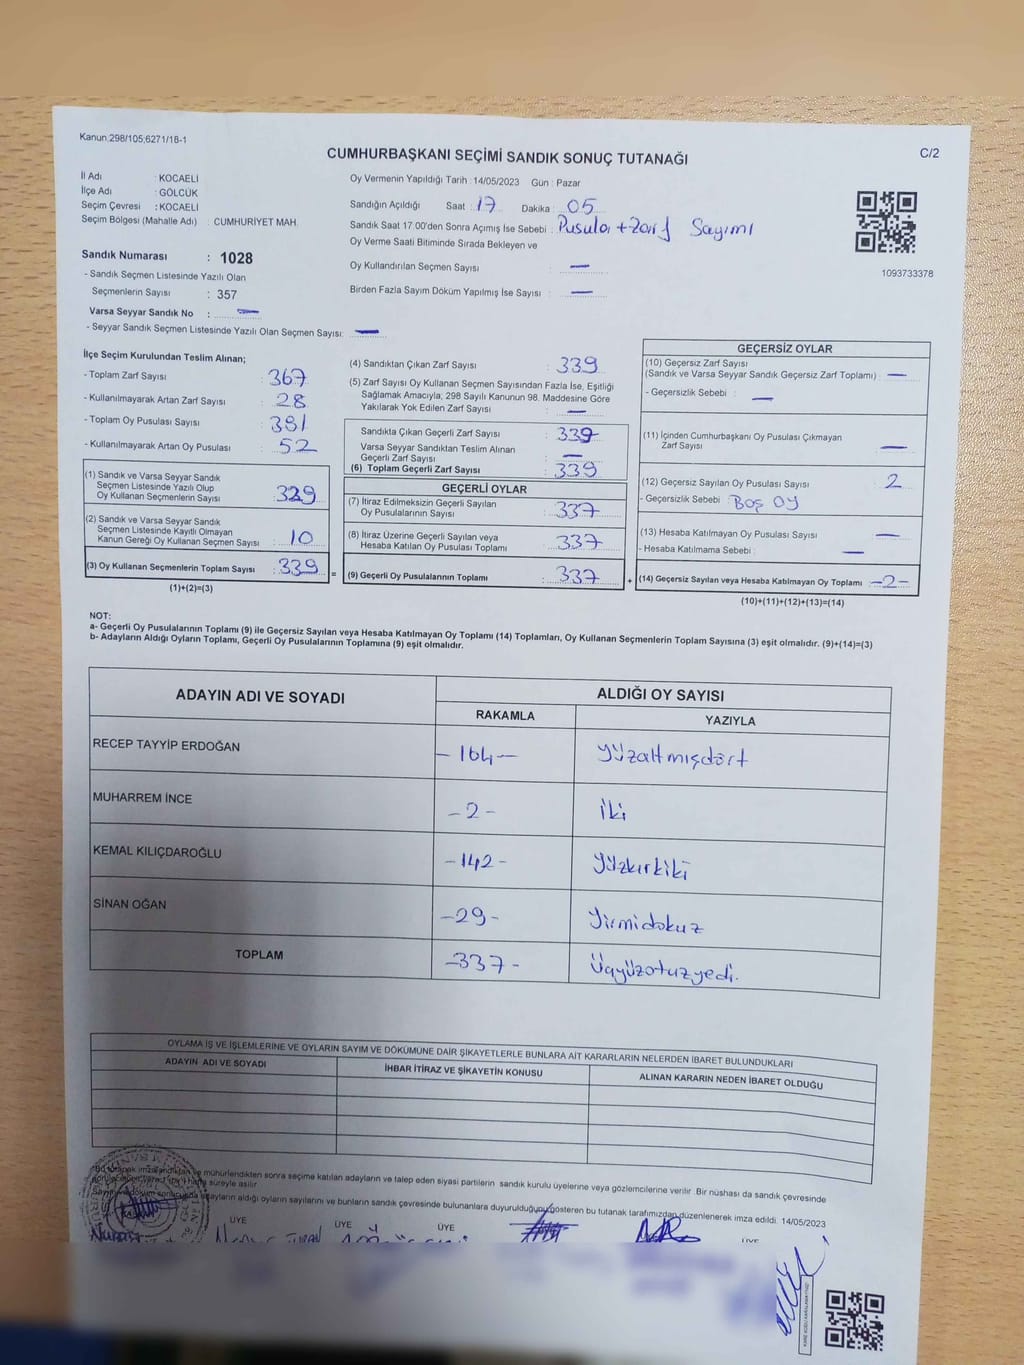 Kanun 298/105;6271/18-1
CUMHURBAŞKANI SEÇİMİ SANDIK SONUÇ TUTANAĞI
C/2
İl Adı : KOCAELİ
İlçe Adı : GÖLCÜK
Seçim Çevresi : KOCAELİ
Seçim Bölgesi (Mahalle Adı) : CUMHURİYET MAH.
Sandık Numarası : 1028
- Sandık Seçmen Listesinde Yazılı Olan
Seçmenlerin Sayısı : 357
Varsa Seyyar Sandık No : —
- Seyyar Sandık Seçmen Listesinde Yazılı Olan Seçmen Sayısı: —
Oy Vermenin Yapıldığı Tarih : 14/05/2023 Gün : Pazar
Sandığın Açıldığı Saat : 17 Dakika : 05
Sandık Saat 17.00'den Sonra Açımış İse Sebebi : Pusula + Zarf Sayımı
Oy Verme Saati Bitiminde Sırada Bekleyen ve
Oy Kullandırılan Seçmen Sayısı : —
Birden Fazla Sayım Döküm Yapılmış İse Sayısı : —
1093733378
İlçe Seçim Kurulundan Teslim Alınan;
- Toplam Zarf Sayısı : 367
- Kullanılmayarak Artan Zarf Sayısı : 28
- Toplam Oy Pusulası Sayısı : 381
- Kullanılmayarak Artan Oy Pusulası : 52
(1) Sandık ve Varsa Seyyar Sandık
Seçmen Listesinde Yazılı Olup
Oy Kullanan Seçmenlerin Sayısı : 329
(2) Sandık ve Varsa Seyyar Sandık
Seçmen Listesinde Kayıtlı Olmayan
Kanun Gereği Oy Kullanan Seçmen Sayısı : 10
(3) Oy Kullanan Seçmenlerin Toplam Sayısı : 339 =
(1)+(2)=(3)
(4) Sandıktan Çıkan Zarf Sayısı : 339
(5) Zarf Sayısı Oy Kullanan Seçmen Sayısından Fazla İse, Eşitliği
Sağlamak Amacıyla; 298 Sayılı Kanunun 98. Maddesine Göre
Yakılarak Yok Edilen Zarf Sayısı : —
Sandıkta Çıkan Geçerli Zarf Sayısı : 339
Varsa Seyyar Sandıktan Teslim Alınan
Geçerli Zarf Sayısı : —
(6) Toplam Geçerli Zarf Sayısı : 339
GEÇERLİ OYLAR
(7) İtiraz Edilmeksizin Geçerli Sayılan
Oy Pusulalarının Sayısı : 337
(8) İtiraz Üzerine Geçerli Sayılan veya
Hesaba Katılan Oy Pusulası Toplamı : 337
(9) Geçerli Oy Pusulalarının Toplamı : 337 +
GEÇERSİZ OYLAR
(10) Geçersiz Zarf Sayısı
(Sandık ve Varsa Seyyar Sandık Geçersiz Zarf Toplamı) : —
- Geçersizlik Sebebi : —
(11) İçinden Cumhurbaşkanı Oy Pusulası Çıkmayan
Zarf Sayısı : —
(12) Geçersiz Sayılan Oy Pusulası Sayısı : 2
- Geçersizlik Sebebi : Boş oy
(13) Hesaba Katılmayan Oy Pusulası Sayısı : —
- Hesaba Katılmama Sebebi : —
(14) Geçersiz Sayılan veya Hesaba Katılmayan Oy Toplamı : -2-
(10)+(11)+(12)+(13)=(14)
NOT:
a- Geçerli Oy Pusulalarının Toplamı (9) ile Geçersiz Sayılan veya Hesaba Katılmayan Oy Toplamı (14) Toplamları, Oy Kullanan Seçmenlerin Toplam Sayısına (3) eşit olmalıdır. (9)+(14)=(3)
b- Adayların Aldığı Oyların Toplamı, Geçerli Oy Pusulalarının Toplamına (9) eşit olmalıdır.
ADAYIN ADI VE SOYADI ALDIĞI OY SAYISI
RAKAMLA YAZIYLA
RECEP TAYYİP ERDOĞAN -164- yüzaltmışdört
MUHARREM İNCE -2- iki
KEMAL KILIÇDAROĞLU -142- yüzkırkiki
SİNAN OĞAN -29- yirmidokuz
TOPLAM -337- Üçyüzotuzyedi.
OYLAMA İŞ VE İŞLEMLERİNE VE OYLARIN SAYIM VE DÖKÜMÜNE DAİR ŞİKAYETLERLE BUNLARA AİT KARARLARIN NELERDEN İBARET BULUNDUKLARI
ADAYIN ADI VE SOYADI İHBAR İTİRAZ VE ŞİKAYETİN KONUSU ALINAN KARARIN NEDEN İBARET OLDUĞU
mühürlendikten sonra seçime katılan adayların ve talep eden siyasi partilerin sandık kurulu üyelerine veya gözlemcilerine verilir. Bir nüshası da sandık çevresinde
süreyle asılır.
adayların aldığı oyların sayılarını ve bunların sandık çevresinde bulunanlara duyurulduğunu gösteren bu tutanak tarafımızdan düzenlenerek imza edildi. 14/05/2023
BAŞKAN ÜYE ÜYE ÜYE ÜYE